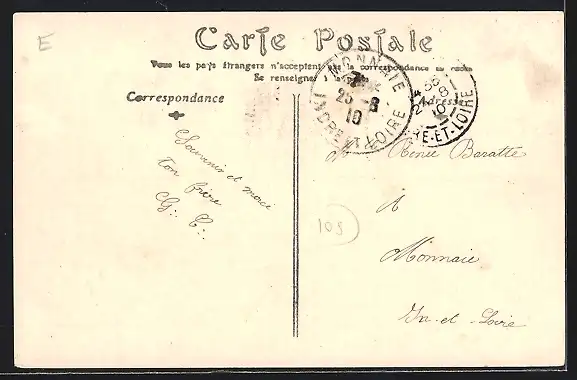 E
Carte Postale
Tous les pays étrangers n'acceptent pas la correspondance au recto
Se renseigner à la poste
Correspondance
Adresse
MONNAIE
25 - 8
10
INDRE ET LOIRE
24 8
10
RE-ET-LOIRE
Souvenir et
ton frère
G. C.
Renée Baratte
A
Monnaie
In-et-Loire
109